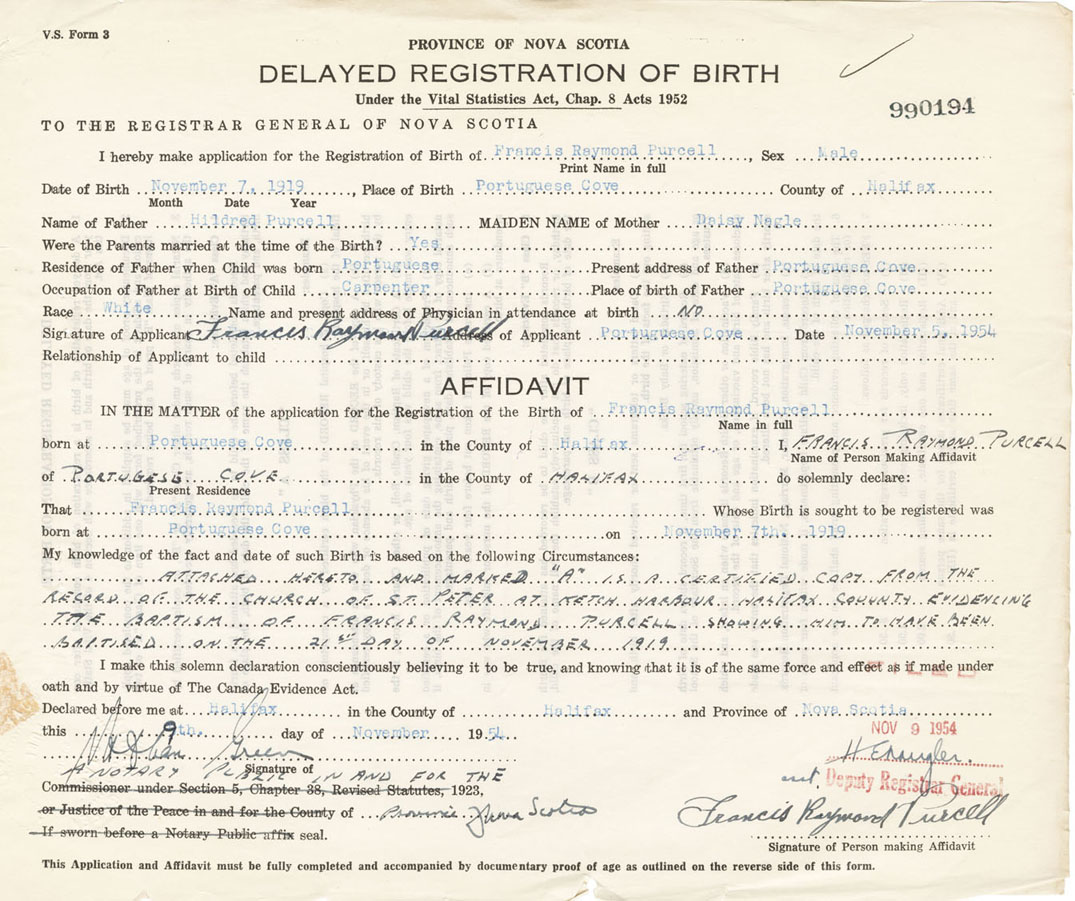 V.S. Form 3
PROVINCE OF NOVA SCOTIA
DELAYED REGISTRATION OF BIRTH
Under the Vital Statistics Act, Chap. 8 Acts 1952
990194
TO THE REGISTRAR GENERAL OF NOVA SCOTIA
I hereby make application for the Registration of Birth of Francis Raymond Purcell, Sex Male
Print Name in full
Date of Birth November 7, 1919, Place of Birth Portuguese Cove County of Halifax
Month Date Year
Name of Father Hildred Purcell MAIDEN NAME of Mother Daisy Nagle
Were the Parents married at the time of the Birth? Yes
Residence of Father when Child was born Portuguese Present address of Father Portuguese Cove
Occupation of Father at Birth of Child Carpenter Place of birth of Father Portuguese Cove
Race White Name and present address of Physician in attendance at birth NO
Signature of Applicant Francis Raymond Purcell Address of Applicant Portuguese Cove Date November 5, 1954
Relationship of Applicant to child
AFFIDAVIT
IN THE MATTER of the application for the Registration of the Birth of Francis Raymond Purcell
Name in full
born at Portuguese Cove in the County of Halifax I, FRANCIS RAYMOND PURCELL
Name of Person Making Affidavit
of PORTUGESE COVE in the County of HALIFAX do solemnly declare:
Present Residence
That Francis Raymond Purcell Whose Birth is sought to be registered was
born at Portuguese Cove on November 7th, 1919
My knowledge of the fact and date of such Birth is based on the following Circumstances:
ATTACHED HERETO AND MARKED "A" IS A CERTIFIED COPY FROM THE
RECORD OF THE CHURCH OF ST. PETER AT KETCH HARBOUR HALIFAX COUNTY EVIDENCING
THE BAPTISM OF FRANCIS RAYMOND PURCELL SHOWING HIM TO HAVE BEEN
BAPTISED ON THE 21ST DAY OF NOVEMBER 1919
I make this solemn declaration conscientiously believing it to be true, and knowing that it is of the same force and effect as if made under
oath and by virtue of The Canada Evidence Act.
Declared before me at Halifax in the County of Halifax and Province of Nova Scotia
this 9th. day of November 1954
NOV 9 1954
Green
Signature of
A NOTARY PUBLIC IN AND FOR THE
Deputy Registrar General
Commissioner under Section 5, Chapter 38, Revised Statutes, 1923,
or Justice of the Peace in and for the County of Province of Nova Scotia
Francis Raymond Purcell
If sworn before a Notary Public affix seal.
Signature of Person making Affidavit
This Application and Affidavit must be fully completed and accompanied by documentary proof of age as outlined on the reverse side of this form.